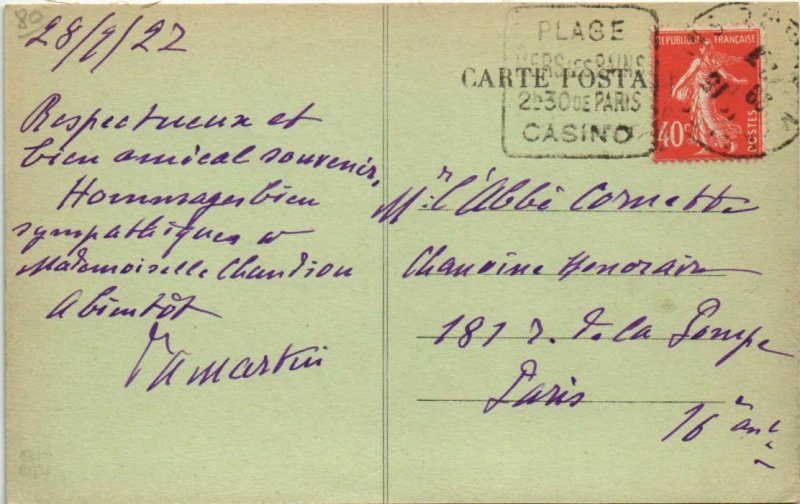 80
28/9/27
Respectueux et
bien amical souvenir,
Hommages bien
sympathiques à
Mademoiselle Chandion
A bientôt
Martin
PLAGE
MERS LES BAINS
2h30 DE PARIS
CASINO
CARTE POSTA
REPUBLIQUE FRANÇAISE
40c
POSTES
Mr l'Abbé Cornette
Chanoine Honoraire
181 r. de la Pompe
Paris
16e arrt